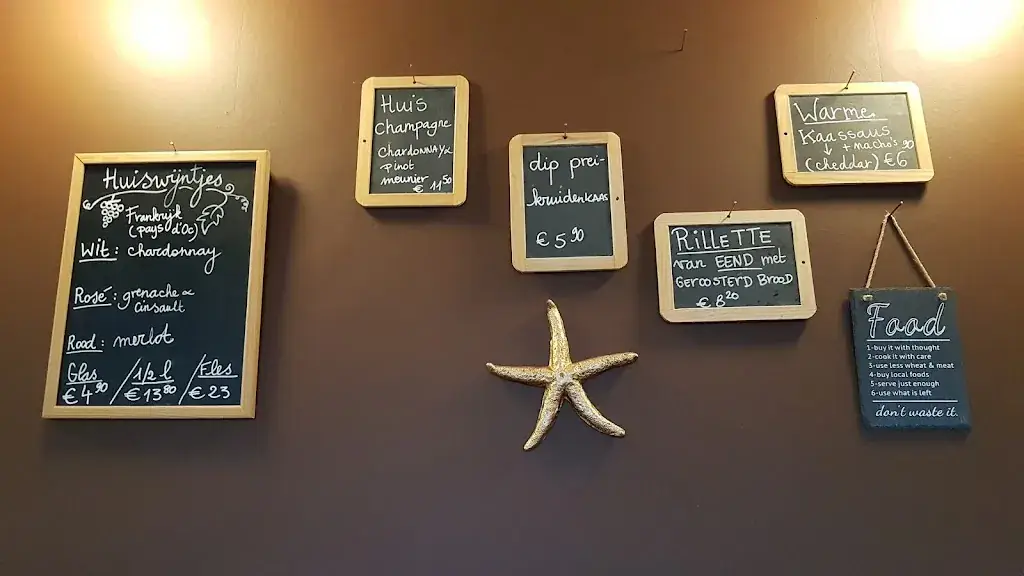 Huiswijntjes
Frankrijk
(pays d'Oc)
Wit: chardonnay
Rosé: grenache &
cinsault
Rood: merlot
Glas / 1/2 l / Fles
€ 4,90 / € 13,80 / € 23
Huis
Champagne
Chardonnay &
pinot
meunier
€ 11,50
dip prei-
kruidenkaas
€ 5,90
RILLETTE
van EEND met
GEROOSTERD BROOD
€ 8,20
Warme
Kaassaus
↓ + nacho's
(cheddar) € 6,90
Food
1-buy it with thought
2-cook it with care
3-use less wheat & meat
4-buy local foods
5-serve just enough
6-use what is left
don't waste it.